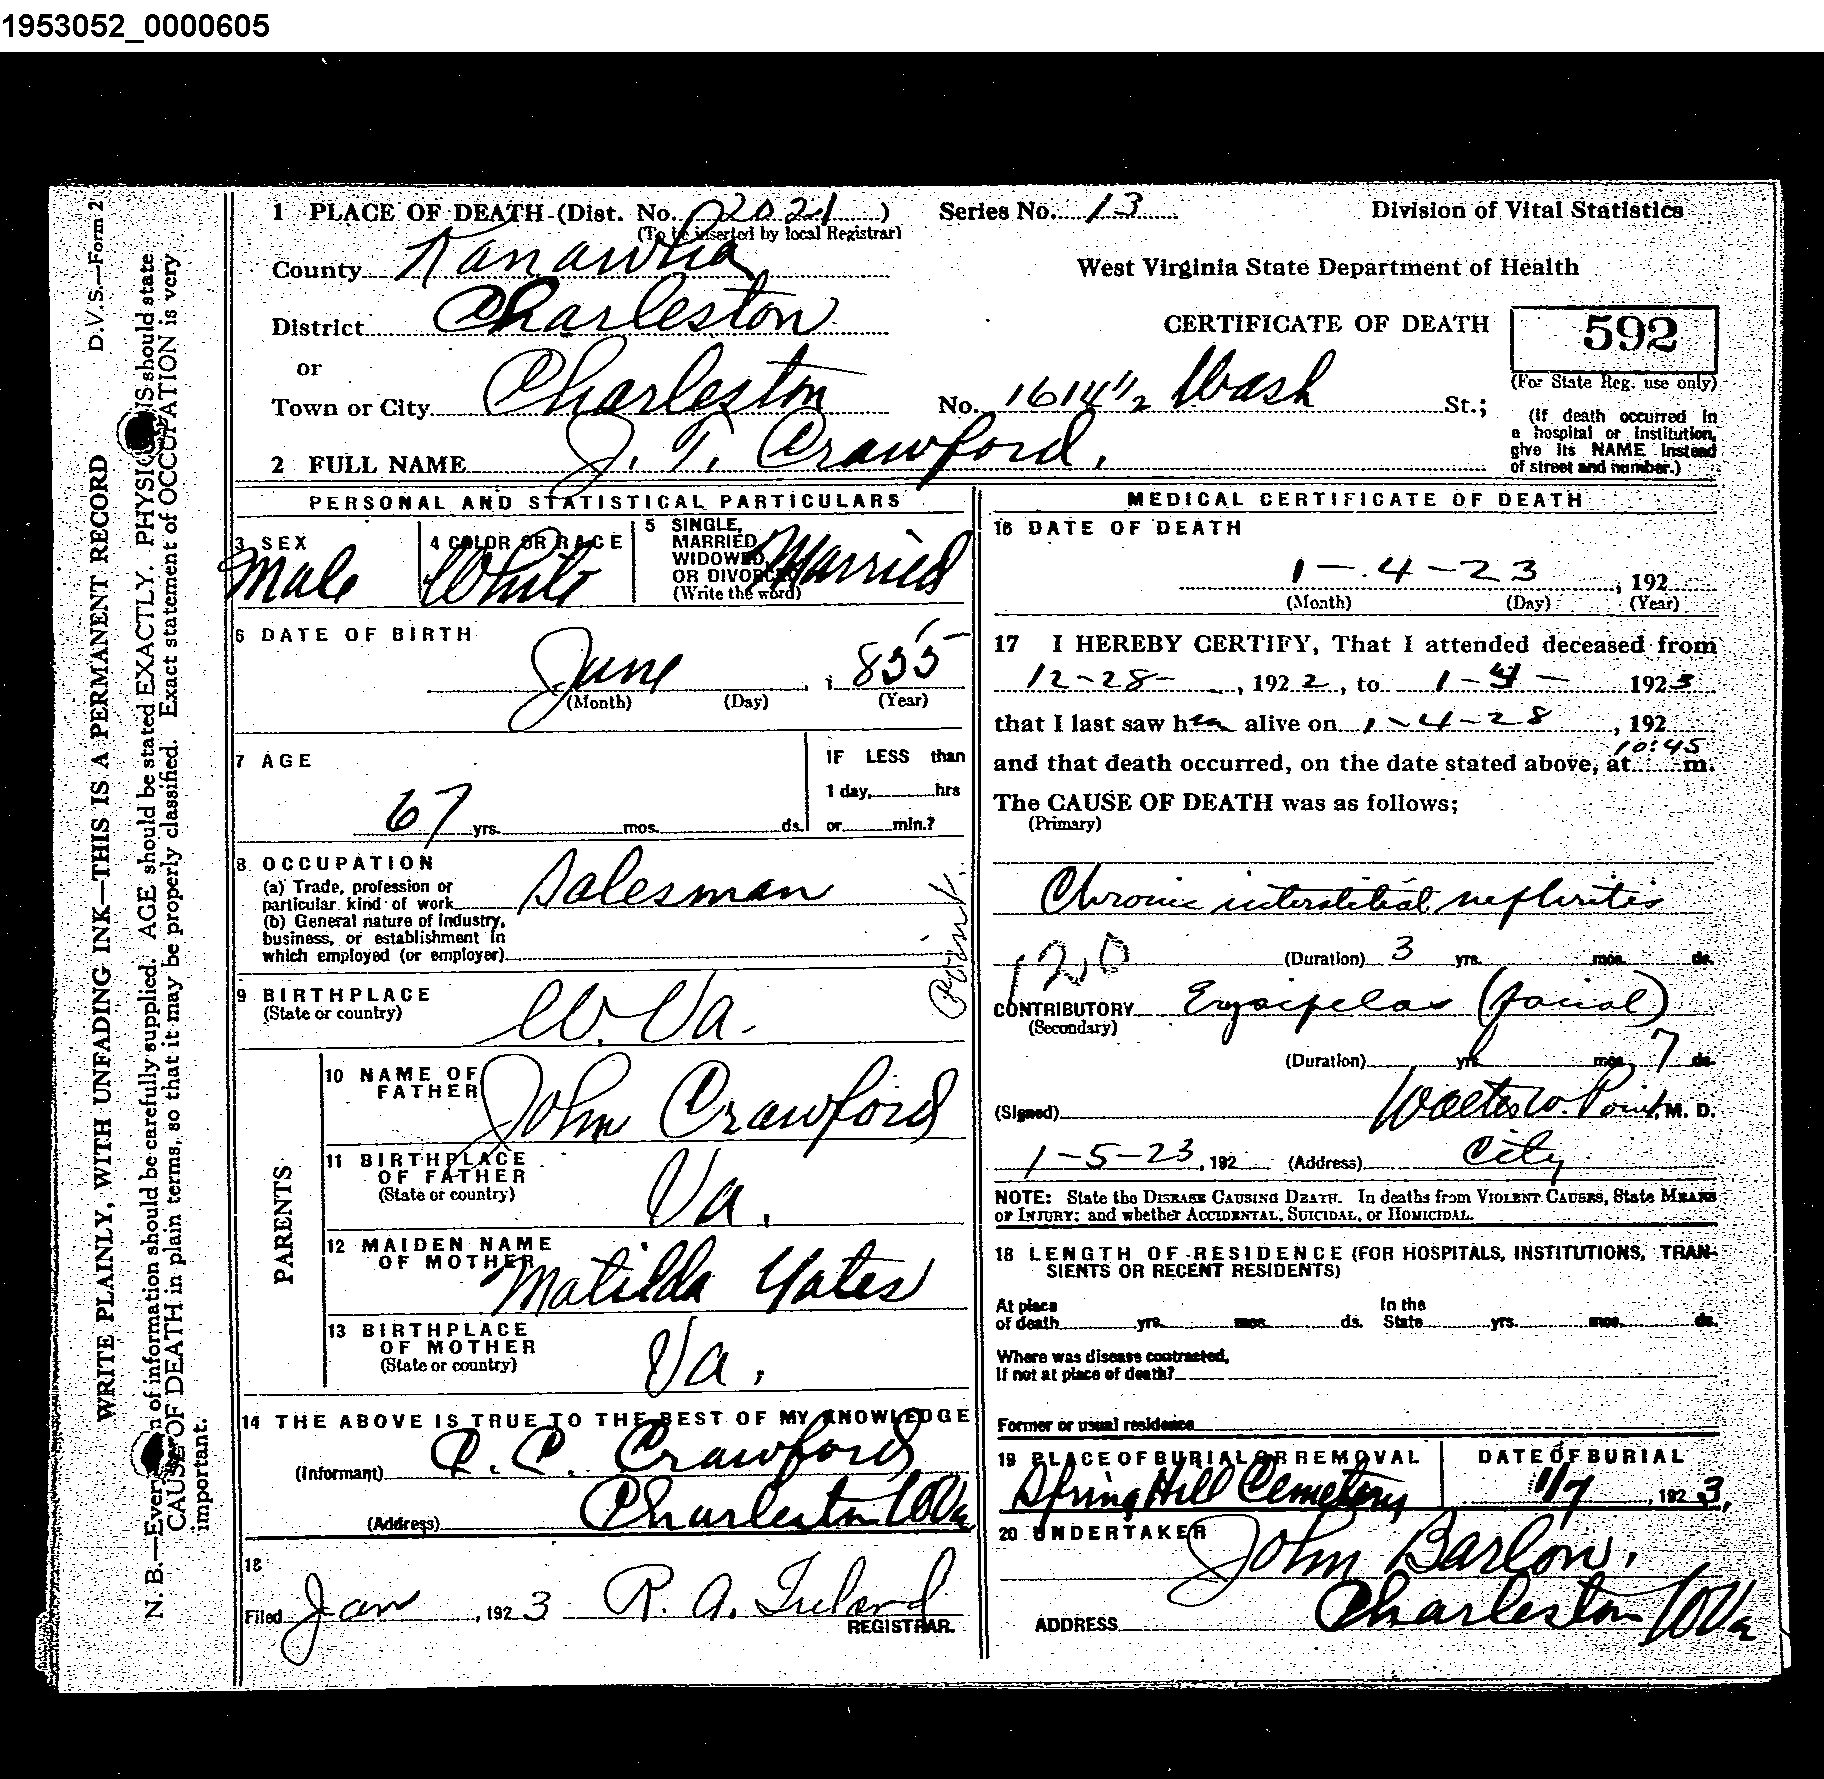 1953052_0000605
D.V.S.—Form 2
WRITE PLAINLY, WITH UNFADING INK—THIS IS A PERMANENT RECORD
N. B.—Every of information should be carefully supplied. AGE should be stated EXACTLY. PHYSIC NS should state
CAUSE OF DEATH in plain terms, so that it may be properly classified. Exact statement of OCCUPATION is very
important.
1 PLACE OF DEATH-(Dist. No. 2021 )
(To be inserted by local Registrar)
Series No. 13
Division of Vital Statistics
County Kanawha
West Virginia State Department of Health
District Charleston
CERTIFICATE OF DEATH
592
(For State Reg. use only)
or
Town or City Charleston
No. 1614½ Wash St.;
(If death occurred in
a hospital or institution,
give its NAME instead
of street and number.)
2 FULL NAME J. T. Crawford.
PERSONAL AND STATISTICAL PARTICULARS
3 SEX
Male
4 COLOR OR RACE
White
5 SINGLE,
MARRIED,
WIDOWED,
OR DIVORCED
(Write the word)
Married
6 DATE OF BIRTH
June , 1855
(Month) (Day) (Year)
7 AGE
67 yrs. mos. ds.
IF LESS than
1 day, hrs
or min.?
8 OCCUPATION
(a) Trade, profession or
particular kind of work Salesman
(b) General nature of industry,
business, or establishment in
which employed (or employer)
9 BIRTHPLACE
(State or country)
W. Va.
PARENTS
10 NAME OF
FATHER
John Crawford
11 BIRTHPLACE
OF FATHER
(State or country)
Va.
12 MAIDEN NAME
OF MOTHER
Matilda Yates
13 BIRTHPLACE
OF MOTHER
(State or country)
Va.
14 THE ABOVE IS TRUE TO THE BEST OF MY KNOWLEDGE
(Informant) C. C. Crawford
(Address) Charleston WVa
15
Filed Jan , 1923 R. A. Ireland
REGISTRAR.
MEDICAL CERTIFICATE OF DEATH
16 DATE OF DEATH
1-4-23 , 192
(Month) (Day) (Year)
17 I HEREBY CERTIFY, That I attended deceased from
12-28- , 1922, to 1-4- 1923
that I last saw him alive on 1-4-28 , 192
and that death occurred, on the date stated above, at 10:45 m.
The CAUSE OF DEATH was as follows;
(Primary)
Chronic interstitial nephritis
120
(Duration) 3 yrs. mos. ds.
CONTRIBUTORY Erysipelas (facial)
(Secondary)
(Duration) yrs. mos. 7 ds.
(Signed) Walter W. Point, M. D.
1-5-23, 192 (Address) City
NOTE: State the DISEASE CAUSING DEATH. In deaths from VIOLENT CAUSES, State MEANS
OF INJURY; and whether ACCIDENTAL, SUICIDAL, or HOMICIDAL.
18 LENGTH OF RESIDENCE (FOR HOSPITALS, INSTITUTIONS, TRAN-
SIENTS OR RECENT RESIDENTS)
At place
of death yrs. mos. ds.
In the
State yrs. mos. ds.
Where was disease contracted,
If not at place of death?
Former or usual residence
19 PLACE OF BURIAL OR REMOVAL
Spring Hill Cemetery
DATE OF BURIAL
1/7 , 1923,
20 UNDERTAKER
John Barlow.
ADDRESS Charleston WVa